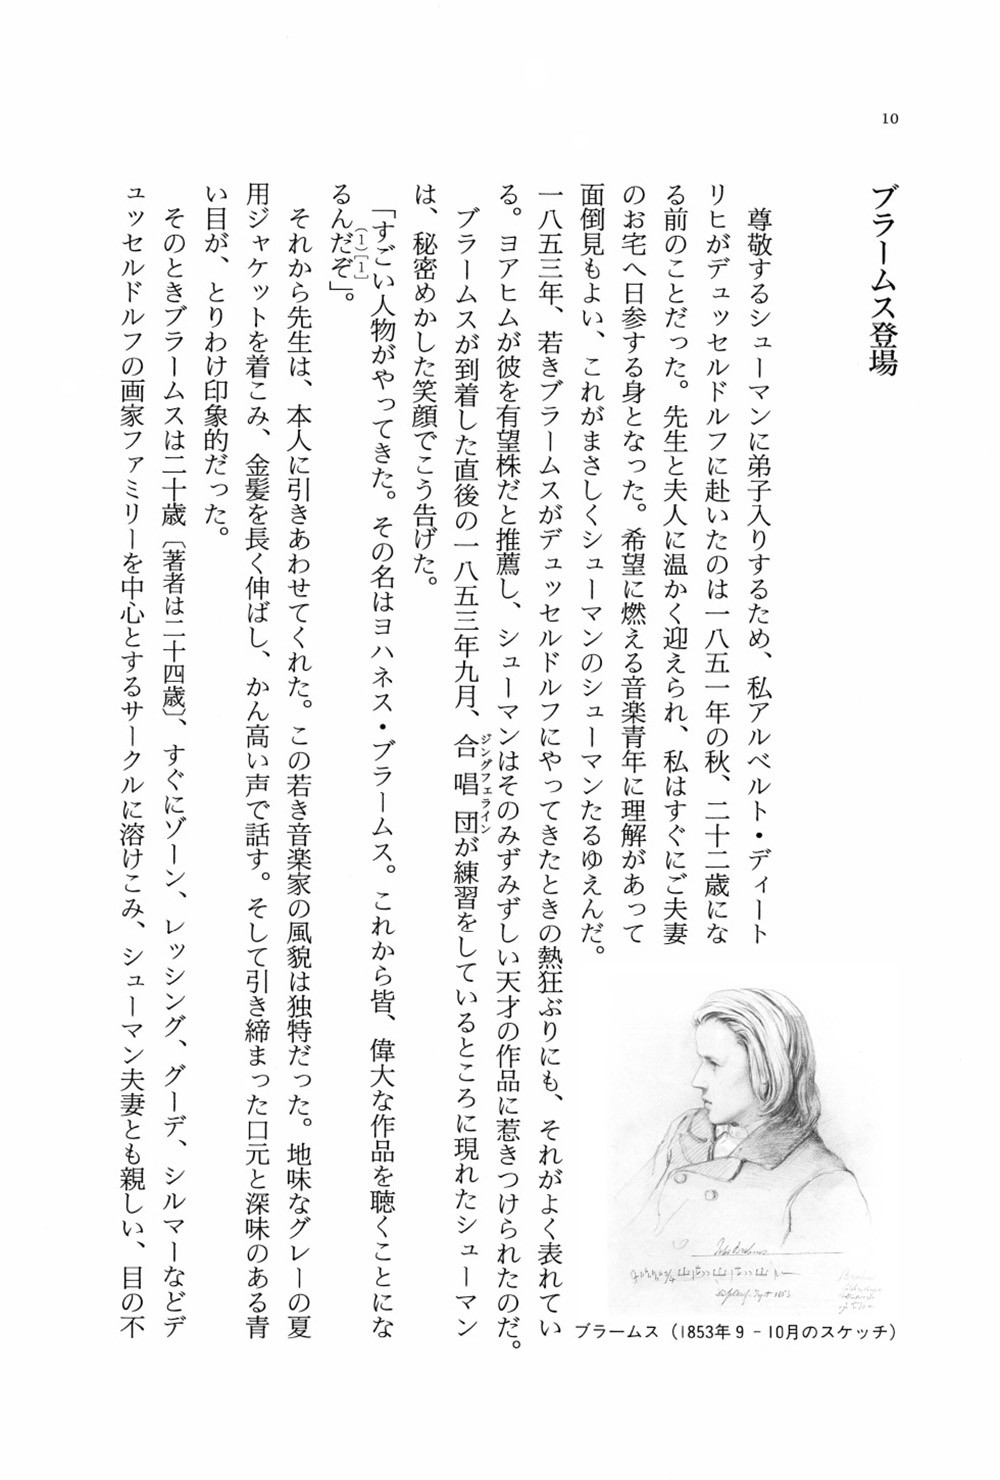 10
ブラームス登場
尊敬するシューマンに弟子入りするため、私アルベルト・ディート
リヒがデュッセルドルフに赴いたのは一八五一年の秋、二十二歳にな
る前のことだった。先生と夫人に温かく迎えられ、私はすぐにご夫妻
のお宅へ日参する身となった。希望に燃える音楽青年に理解があって
面倒見もよい、これがまさしくシューマンのシューマンたるゆえんだ。
一八五三年、若きブラームスがデュッセルドルフにやってきたときの熱狂ぶりにも、それがよく表れてい
る。ヨアヒムが彼を有望株だと推薦し、シューマンはそのみずみずしい天才の作品に惹きつけられたのだ。
ブラームスが到着した直後の一八五三年九月、合唱団が練習をしているところに現れたシューマン
ジングフェライン
は、秘密めかした笑顔でこう告げた。
「すごい人物がやってきた。その名はヨハネス・ブラームス。これから皆、偉大な作品を聴くことにな
るんだぞ」。
(1)[1]
それから先生は、本人に引きあわせてくれた。この若き音楽家の風貌は独特だった。地味なグレーの夏
用ジャケットを着こみ、金髪を長く伸ばし、かん高い声で話す。そして引き締まった口元と深味のある青
い目が、とりわけ印象的だった。
そのときブラームスは二十歳〔著者は二十四歳〕、すぐにゾーン、レッシング、グーデ、シルマーなどデ
ュッセルドルフの画家ファミリーを中心とするサークルに溶けこみ、シューマン夫妻とも親しい、目の不
ブラームス（1853年9－10月のスケッチ）